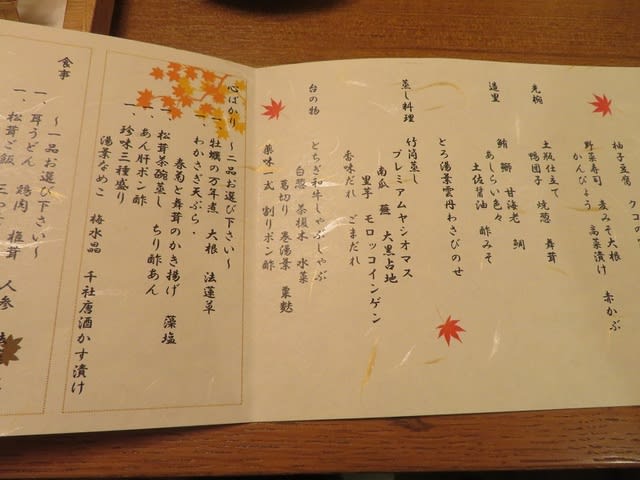 柚子豆腐 クコの
野菜寿司 麦みそ大根 赤かぶ
かんぴょう 高菜漬け
先椀
土瓶仕立て
鴨団子 焼葱 舞茸
造里
鮪 鰤 甘海老 鯛
あしらい色々 酢みそ
土佐醤油
とろ湯葉雲丹わさびのせ
蒸し料理
竹筒蒸し
プレミアムヤシオマス
南瓜 蕪 大黒占地
里芋 モロッコインゲン
香味だれ ごまだれ
台の物
とちぎ和牛しゃぶしゃぶ
白葱 茶榎木 水菜
葛切り 巻湯葉 粟麩
薬味一式 割りポン酢
心ばかり ~二品お選び下さい~
一、牡蠣の万年煮 大根 法蓮草
一、わかさぎ天ぷら・
春菊と舞茸のかき揚げ 藻塩
一、松茸茶碗蒸し ちり酢あん
一、あん肝ポン酢
一、珍味三種盛り
湯葉なめこ 梅水晶 千社唐酒かす漬け
食事
~一品お選び下さい~
一、耳うどん 鶏肉 人参
一、松茸ご飯 三つ 椎茸